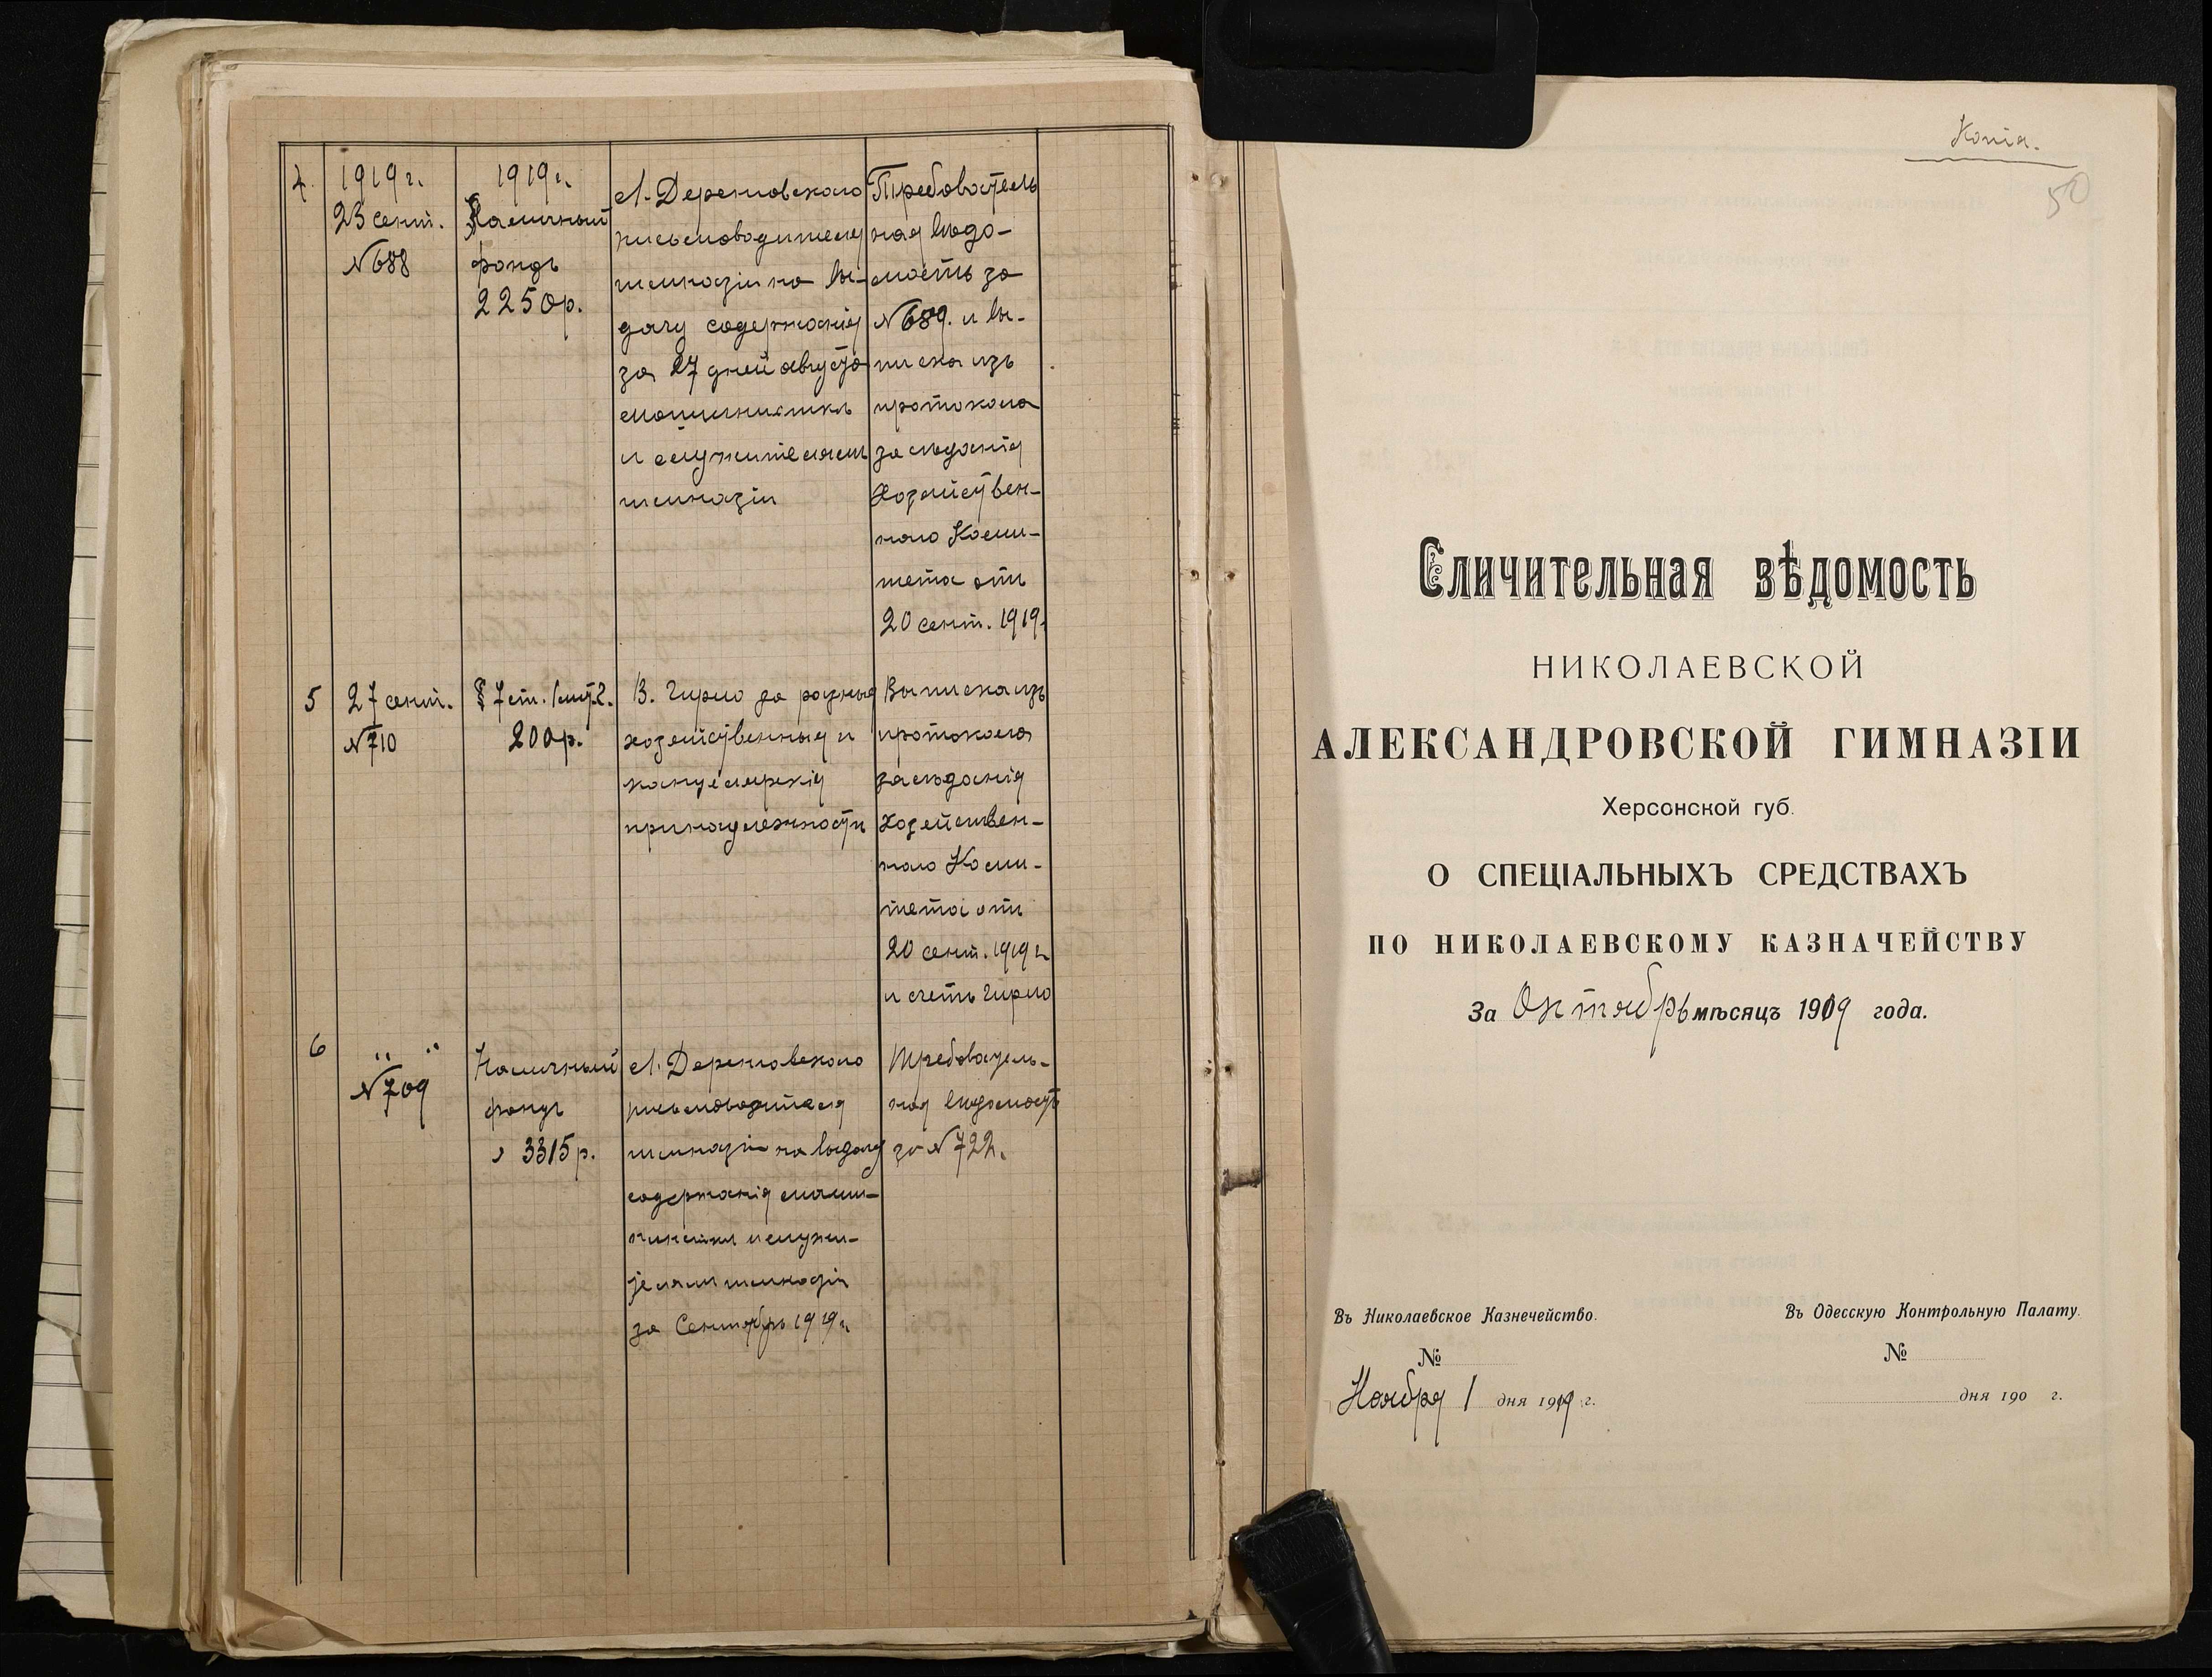 4.
1919 г.
23 сент.
№ 688
1919 г.
Наличный
фондъ
2250 р.
Л. Дереновского
письмоводителя
гимназіи на вы-
дачу содержанія
за 27 дней августа
и служителямъ
гимназіи
Требователь
ная вѣдо-
мость за
№ 689. и вы-
писка изъ
протокола
засѣданія
Хозяйствен-
наго Коми-
тета отъ
20 сент. 1919.
5
27 сент.
№ 710
§ 7 ст. 1
200 р.
В. Гирло за разныя
хозяйственныя и
канцелярскія
принадлежности
Выписка изъ
протокола
засѣданія
Хозяйствен-
наго Коми-
тета отъ
20 сент. 1919 г.
и счетъ Гирло
6
" "
№ 709
Наличный
фондъ
3315 р.
Л. Дереновского
письмоводителя
гимназіи на выдачу
содержанія маши-
нистки и служи-
телям гимназіи
за Сентябрь 1919 г.
Требователь-
ная вѣдомость
за № 722.
Копія.
50
Сличительная вѣдомость
НИКОЛАЕВСКОЙ
АЛЕКСАНДРОВСКОЙ ГИМНАЗІИ
Херсонской губ.
О СПЕЦІАЛЬНЫХЪ СРЕДСТВАХЪ
ПО НИКОЛАЕВСКОМУ КАЗНАЧЕЙСТВУ
За Октябрь мѣсяцъ 1919 года.
Въ Николаевское Казнечейство.
№
Ноября 1 дня 1919 г.
Въ Одесскую Контрольную Палату.
№
дня 190 г.